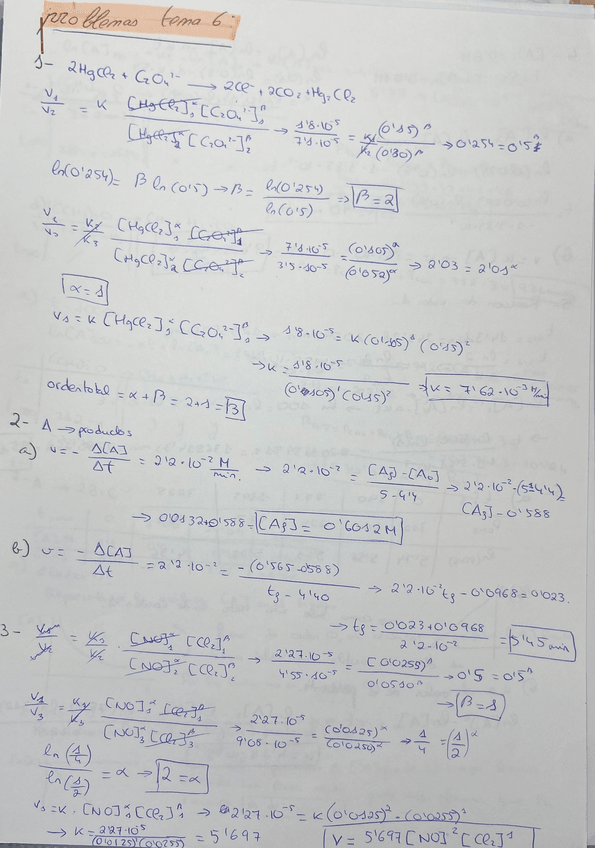 problemas tema 6:
1- 2HgCl2 + C2O4²⁻ → 2Cl⁻ + 2CO2 + Hg2Cl2
V1/V2 = K [HgCl2]1^α [C2O4²⁻]1^β / [HgCl2]2^α [C2O4²⁻]2^β → 1'8·10⁻⁵ / 7'1·10⁻⁵ = K1 (0'15)^β / K2 (0'30)^β → 0'254 = 0'5^β
ln(0'254) = β ln(0'5) → β = ln(0'254) / ln(0'5) ⇒ β = 2
V2/V3 = K2/K3 [HgCl2]1^α [C2O4²⁻]1^β / [HgCl2]2^α [C2O4²⁻]2^β → 7'1·10⁻⁵ / 3'5·10⁻⁵ = (0'105)^α / (0'052)^α → 2'03 = 2'01^α
α = 1
V1 = K [HgCl2]1^α [C2O4²⁻]1^β → 1'8·10⁻⁵ = K (0'105)¹ (0'15)²
→ K = 1'8·10⁻⁵ / (0'105)¹ (0'15)² ⇒ K = 7'62·10⁻³ M/min
orden total = α + β = 2+1 = 3
2- A → productos
a) v = - Δ[A]/Δt = 2'2·10⁻² M/min. → 2'2·10⁻² = [Af] - [A0] / 5 - 4'4 → 2'2·10⁻² · (5-4'4) =
[Af] - 0'588
→ 0'0132 + 0'588 = [Af] = 0'6012 M
b) v = - Δ[A]/Δt = 2'2·10⁻² = -(0'565 - 0588) / tf - 4'40 → 2'2·10⁻² tf - 0'0968 = 0'023.
→ tf = 0'023 + 0'0968 / 2'2·10⁻² = 5'45 min
3- V1/V2 = K1/K2 · [NO]1^α [Cl2]1^β / [NO]2^α [Cl2]2^β → 2'27·10⁻⁵ / 4'55·10⁻⁵ = (0'0255)^β / 0'0510^β → 0'5 = 0'5^β
→ β = 1
V1/V3 = K1/K3 [NO]1^α [Cl2]1^β / [NO]3^α [Cl2]3^β → 2'27·10⁻⁵ / 9'08·10⁻⁵ = (0'0125)^α / (0'0250)^α → 1/4 = (1/2)^α
ln(1/4) / ln(1/2) = α → 2 = α
V1 = K · [NO]1^α [Cl2]1^β → 2'27·10⁻⁵ = K (0'0125)² · (0'0255)¹
→ K = 2'27·10⁻⁵ / (0'0125)² (0'0255) = 5'697 V = 5'697 [NO]² [Cl2]¹